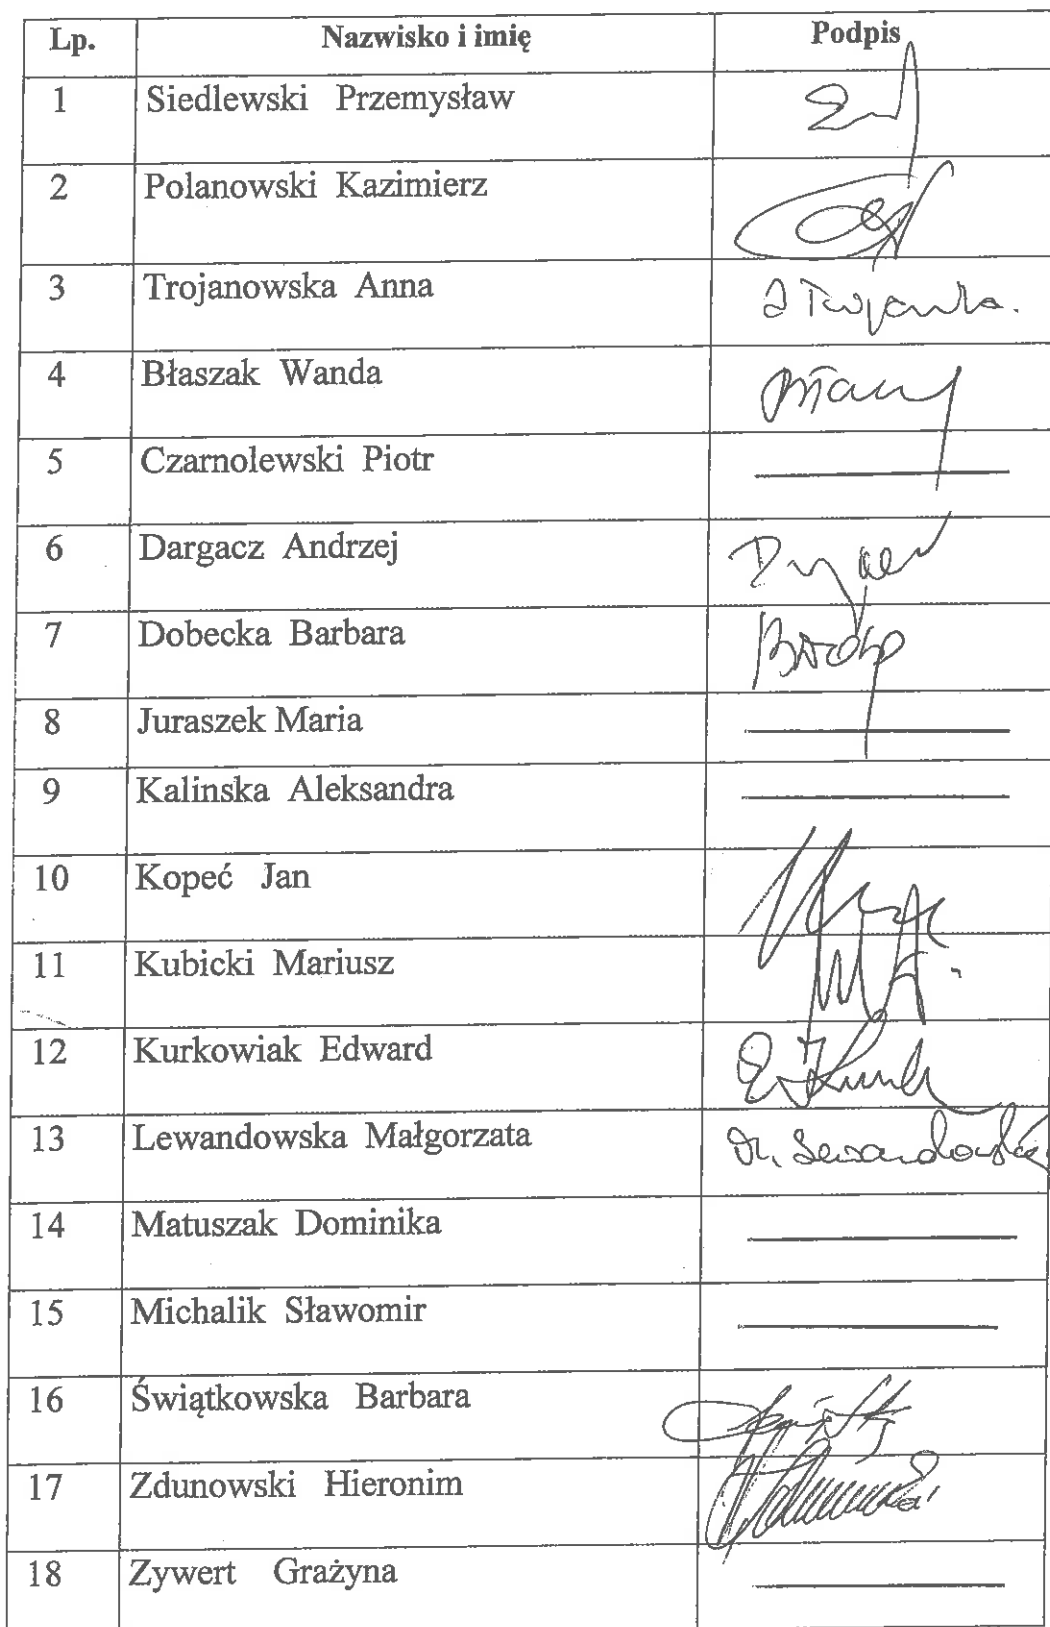 Lp. Nazwisko i imię Podpis
1 Siedlewski Przemysław
2 Polanowski Kazimierz
3 Trojanowska Anna
4 Błaszak Wanda
5 Czarnolewski Piotr
6 Dargacz Andrzej
7 Dobecka Barbara
8 Juraszek Maria
9 Kalinska Aleksandra
10 Kopeć Jan
11 Kubicki Mariusz
12 Kurkowiak Edward
13 Lewandowska Małgorzata
14 Matuszak Dominika
15 Michalik Sławomir
16 Świątkowska Barbara
17 Zdunowski Hieronim
18 Zywert Grażyna